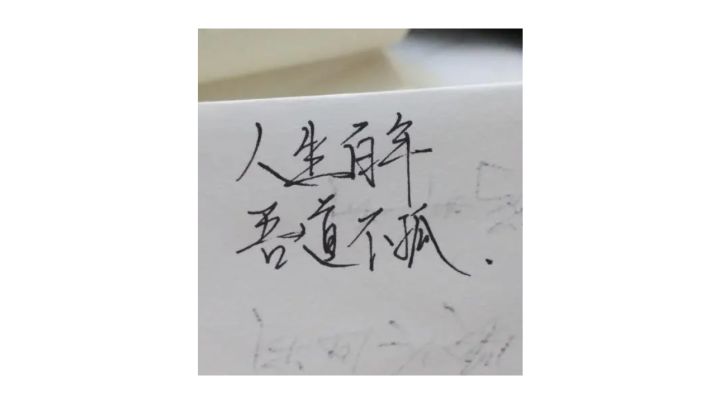 人生百年
吾道不孤.